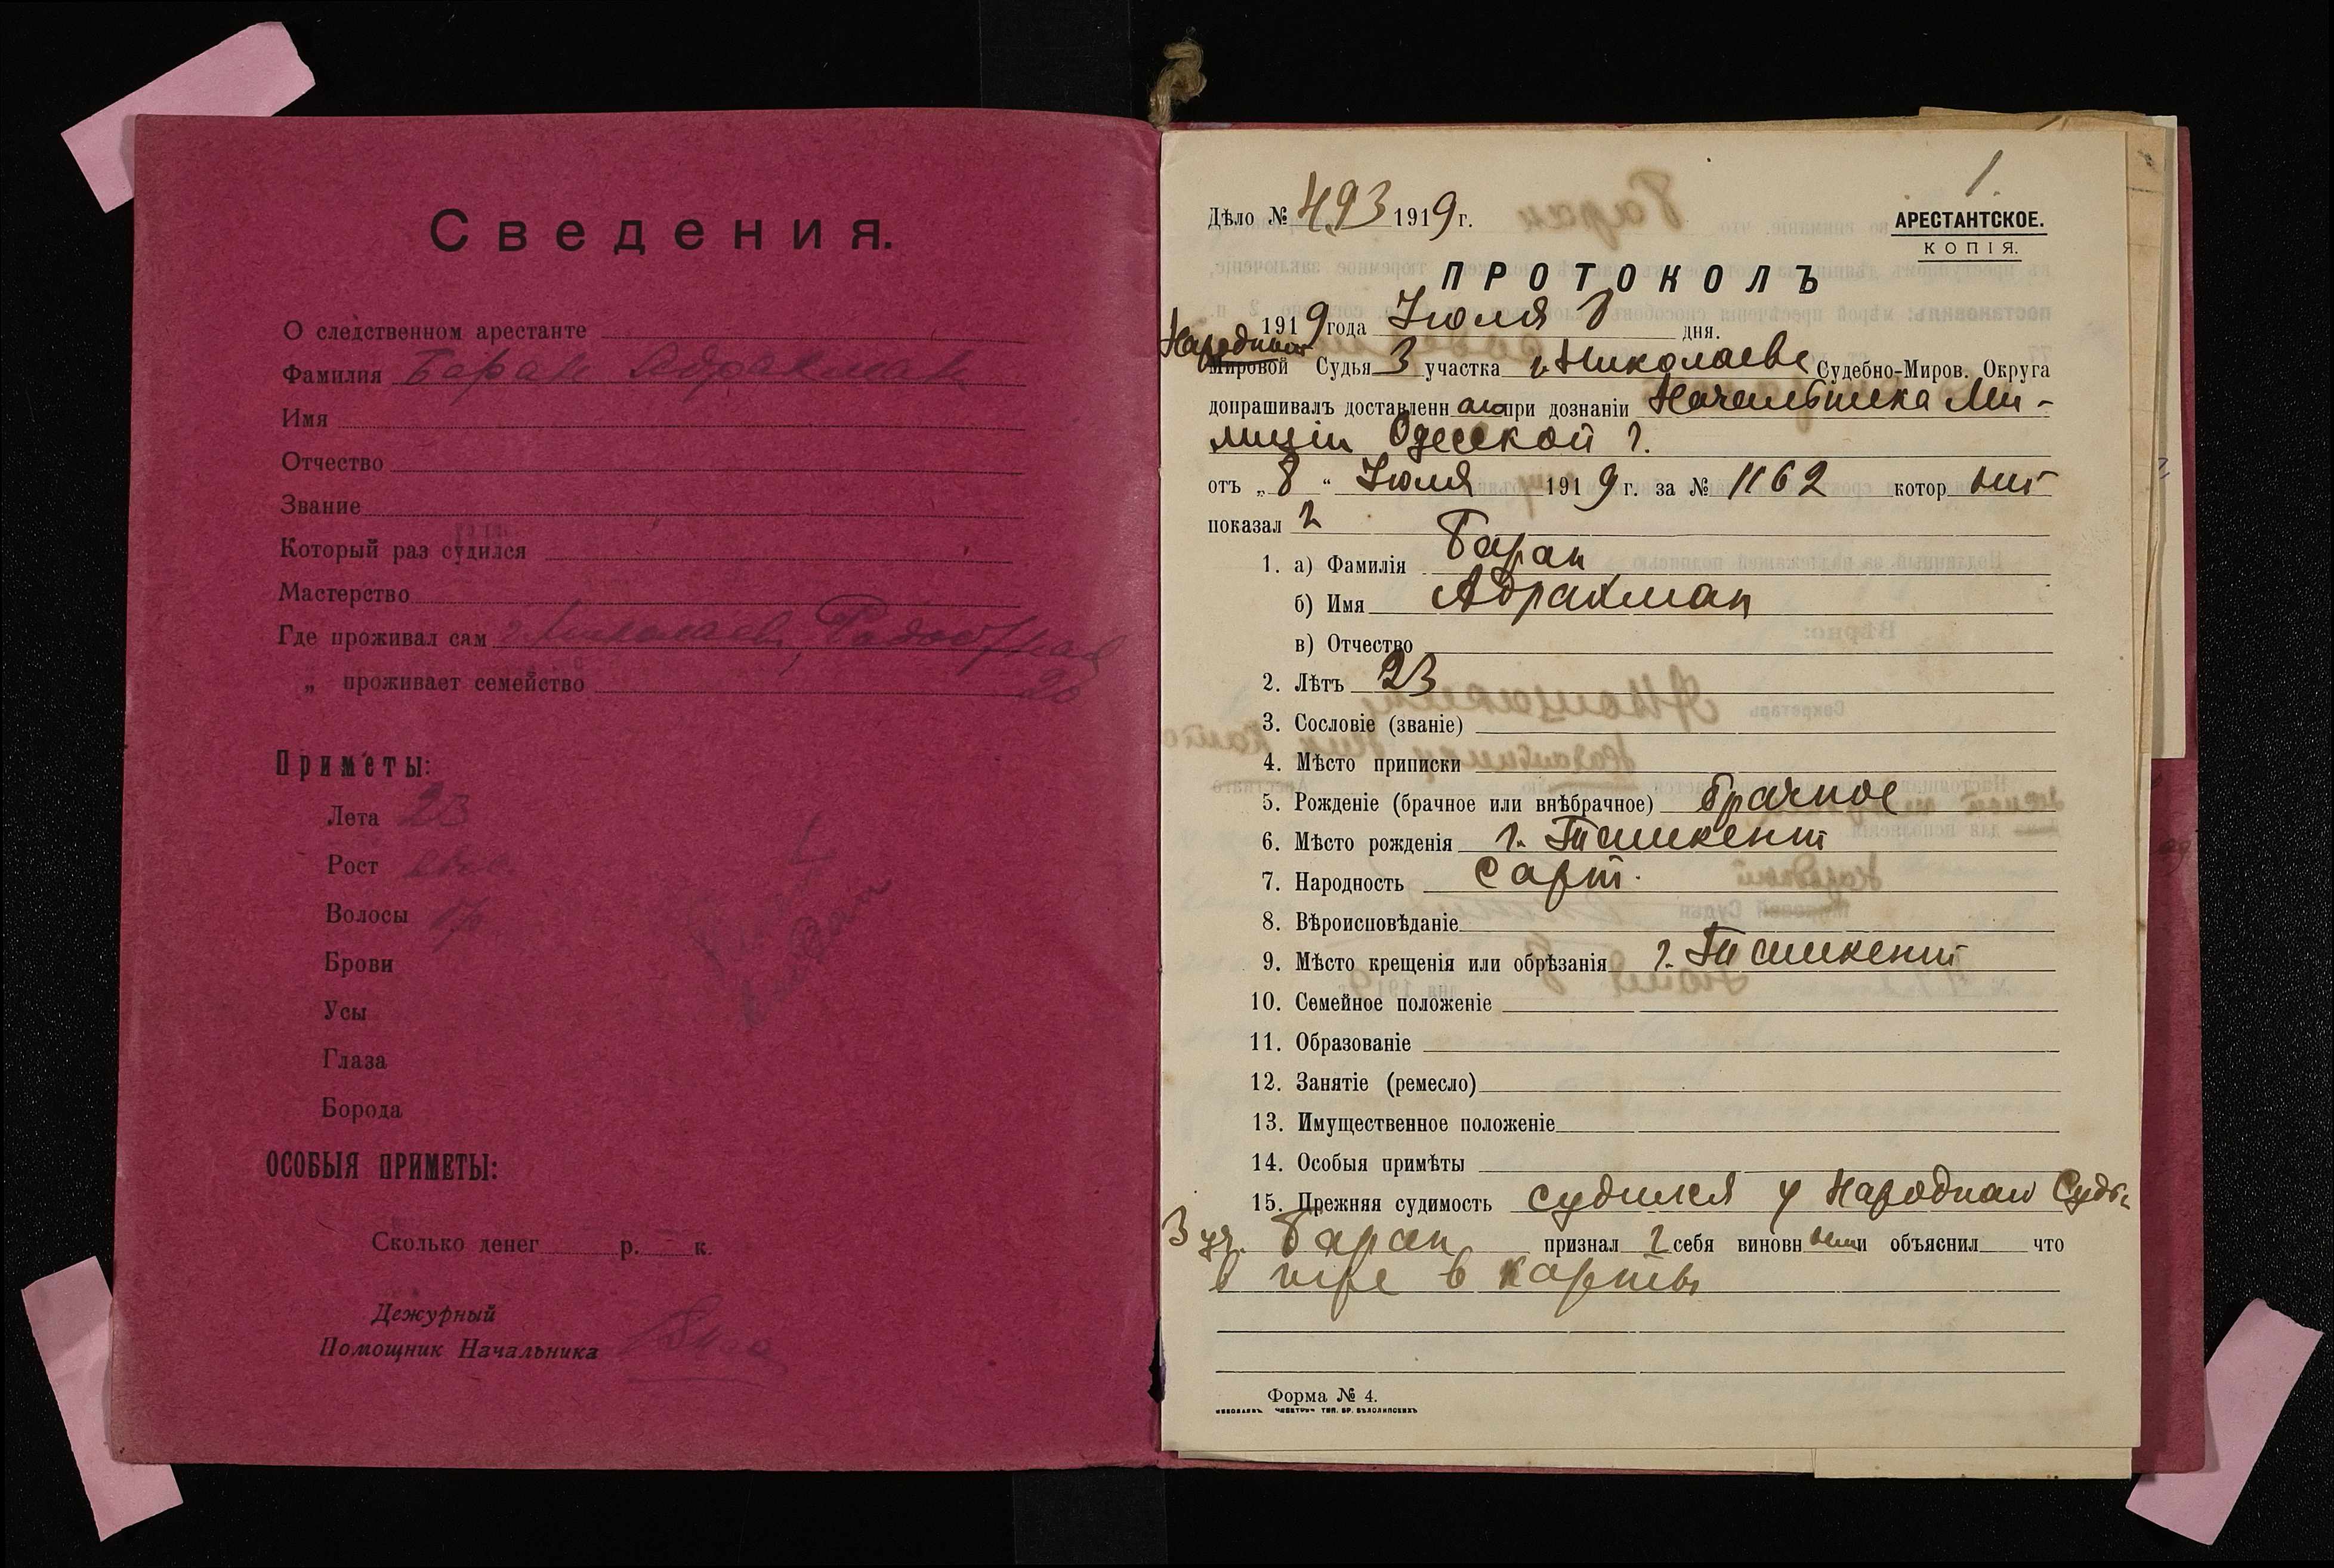 Сведения.
О следственном арестанте
Фамилия Баран Абрахман
Имя
Отчество
Звание
Который раз судился
Мастерство
Где проживал сам г. Николаев,
„ проживает семейство 20
Приметы:
Лета 23
Рост
Волосы
Брови
Усы
Глаза
Борода
ОСОБЫЯ ПРИМЕТЫ:
Сколько денег р. к.
Дежурный
Помощник Начальника
1.
Дѣло № 493 1919 г.
АРЕСТАНТСКОЕ.
КОПІЯ.
ПРОТОКОЛЪ
1919 года Июля 8 дня.
Народный
Мировой Судья 3 участка г. Николаева Судебно-Миров. Округа
допрашивалъ доставленнаго при дознаніи Начальника Ми-
лиціи Одесской г.
отъ „8“ Июля 1919 г. за № 1162 который
показал
1. а) Фамилія Баран
б) Имя Абрахман
в) Отчество
2. Лѣтъ 23
3. Сословіе (званіе)
4. Мѣсто приписки
5. Рожденіе (брачное или внѣбрачное) брачное
6. Мѣсто рожденія г. Ташкент
7. Народность Сарт.
8. Вѣроисповѣданіе
9. Мѣсто крещенія или обрѣзанія г. Ташкент
10. Семейное положеніе
11. Образованіе
12. Занятіе (ремесло)
13. Имущественное положеніе
14. Особыя примѣты
15. Прежняя судимость судился у Народнаго Судьи
3 уч. Баран признал себя виновным и объяснил что
в игре в карты
Форма № 4.